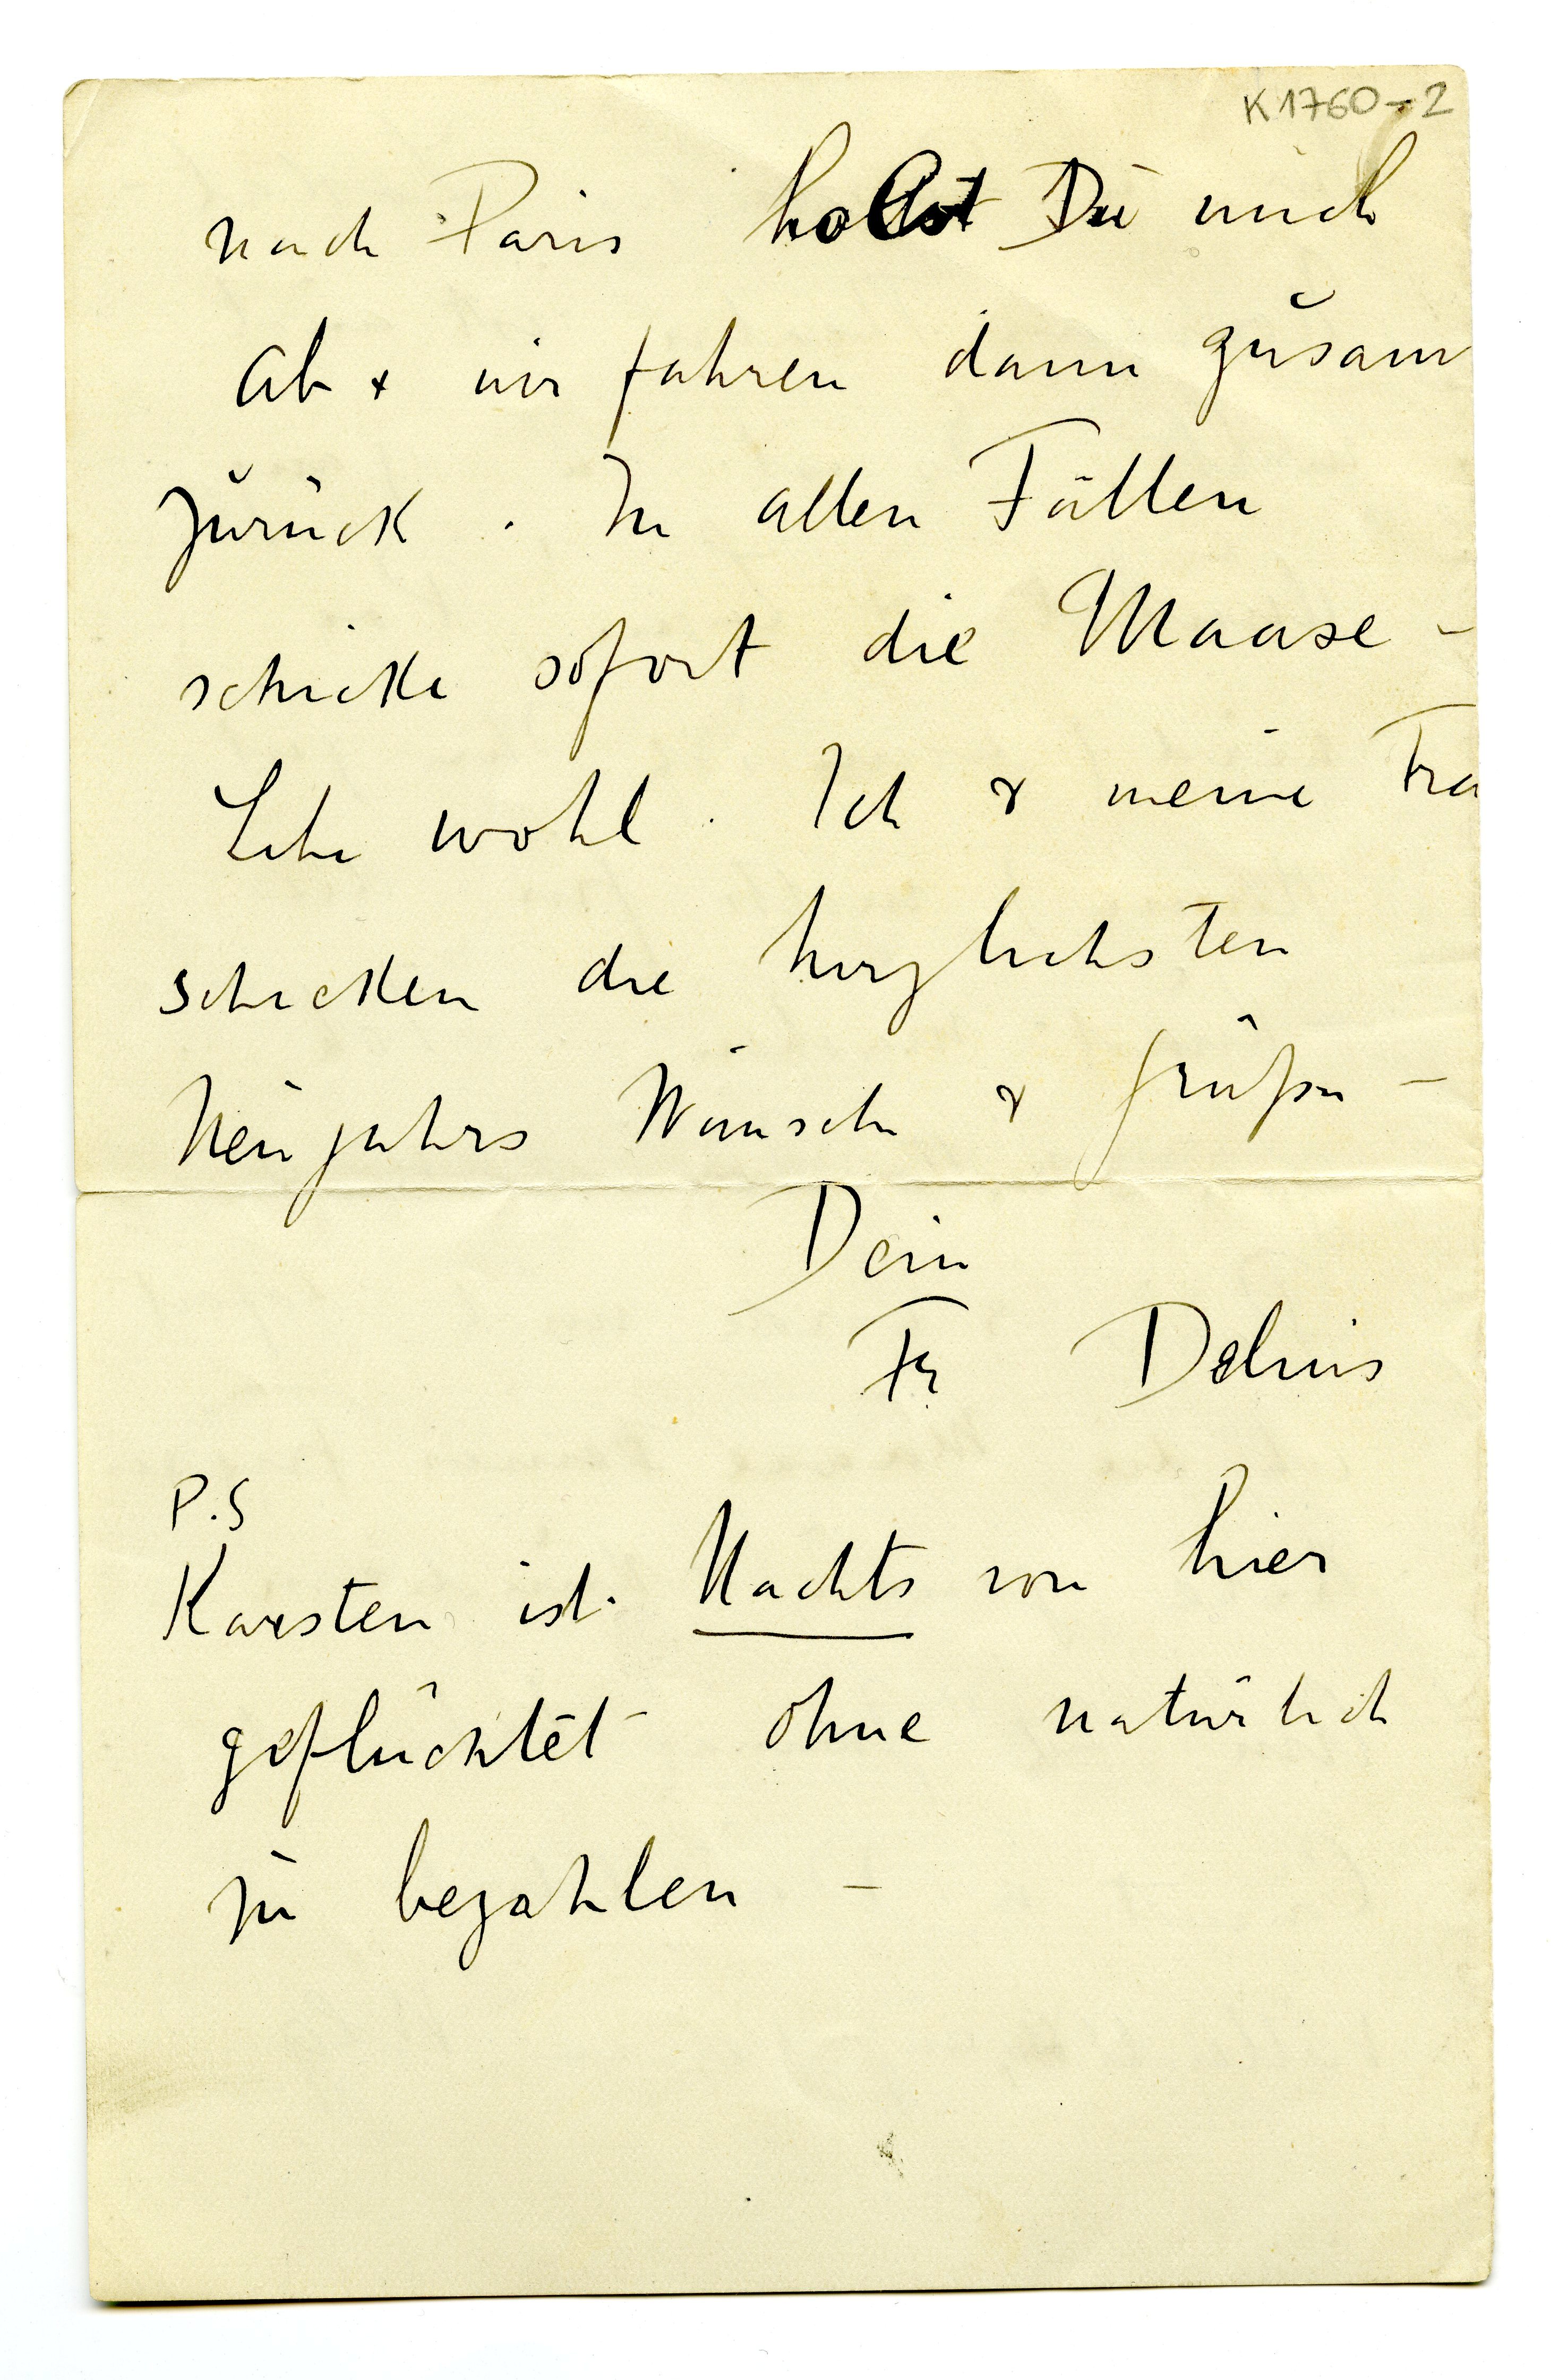 K 1760-2
nach Paris holst Du mich
ab + wir fahren dann zusam
zurück. In allen Fällen
schicke sofort die Maase -
Lebe wohl. Ich & meine Fra
schicken die herzlichsten
Neujahrs Wünsche & grüße -
Dein
Fr Delius
P.S
Karsten ist Nachts von hier
geflüchtet - ohne natürlich
zu bezahlen -